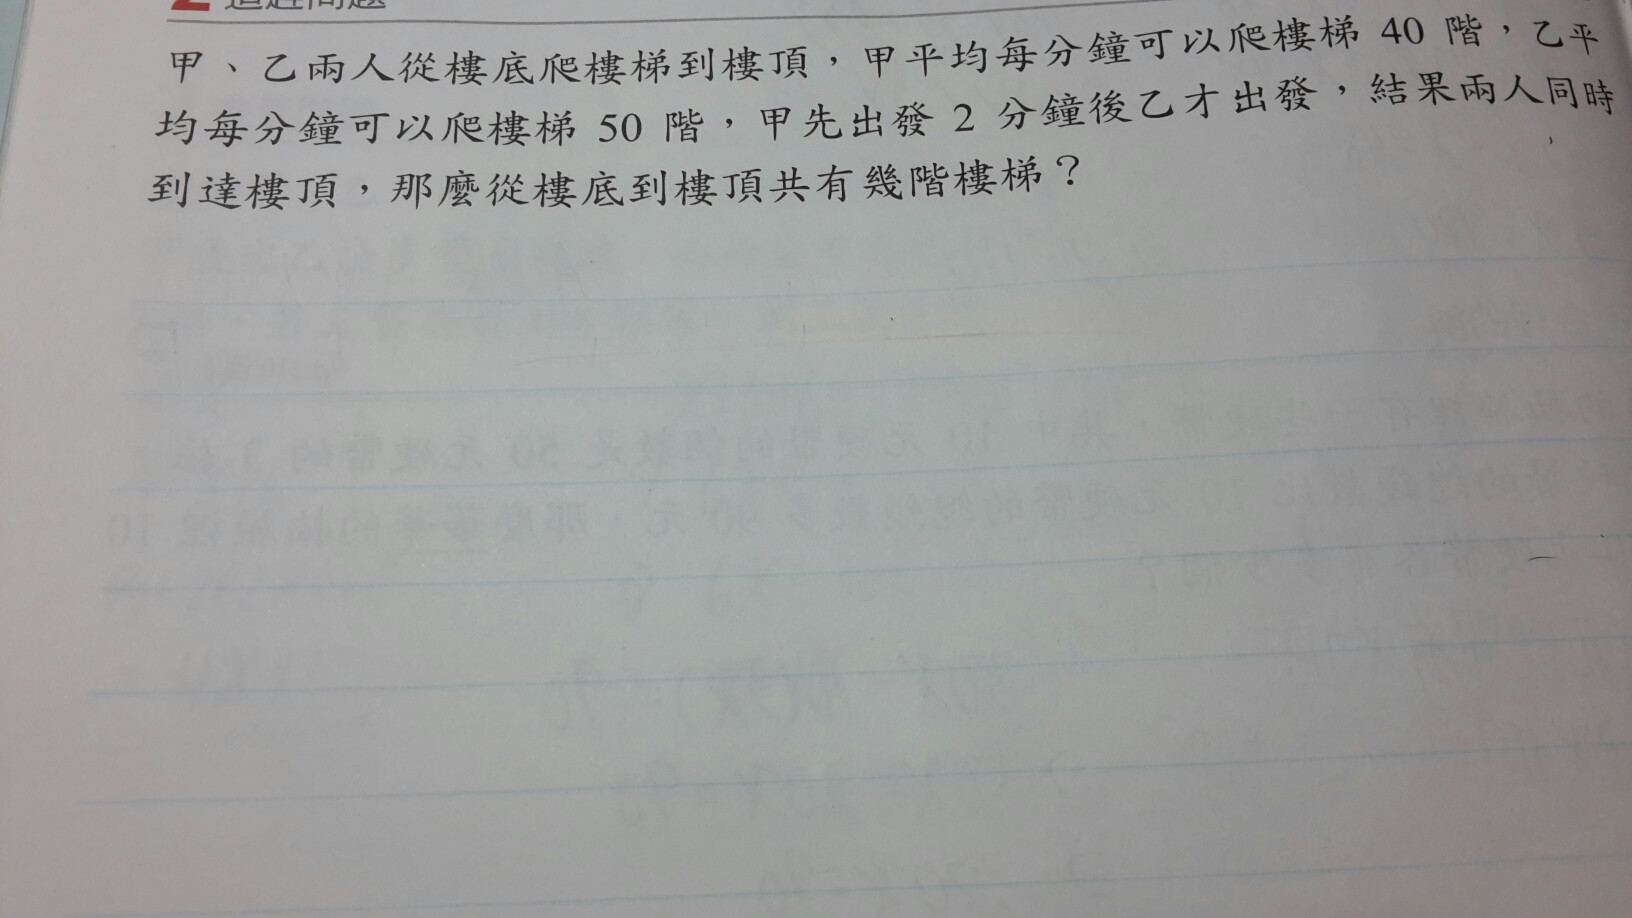 2 追趕問題
甲、乙兩人從樓底爬樓梯到樓頂，甲平均每分鐘可以爬樓梯 40 階，乙平
均每分鐘可以爬樓梯 50 階，甲先出發 2 分鐘後乙才出發，結果兩人同時
到達樓頂，那麼從樓底到樓頂共有幾階樓梯？